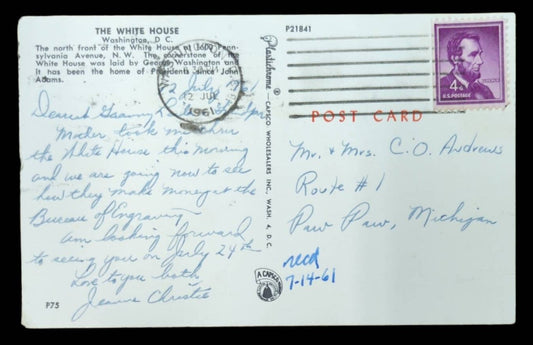 THE WHITE HOUSE
Washington, D C.
The north front of the White House on 1600 Pennsylvania Avenue, N. W. The cornerstone of the
White House was laid by George Washington and
it has been the home of Presidents since John
Adams.
P21841
12 July 1961
Dearest Granny
Mother took me thru
the White House this morning
and we are going now to see
how they make money at the
Bureau of Engraving.
Am looking forward
to seeing you on July 24th
Love to you both
Jeanne Christie
P75
Plastichrome ® — CAPSCO WHOLESALERS INC., WASH. 4, D. C.
WASHINGTON
12 JUL
1961
4¢
U.S. POSTAGE
POST CARD
Mr. & Mrs. C. O. Andrews
Route #1
Paw Paw, Michigan
recd
7-14-61
A CAPSCO